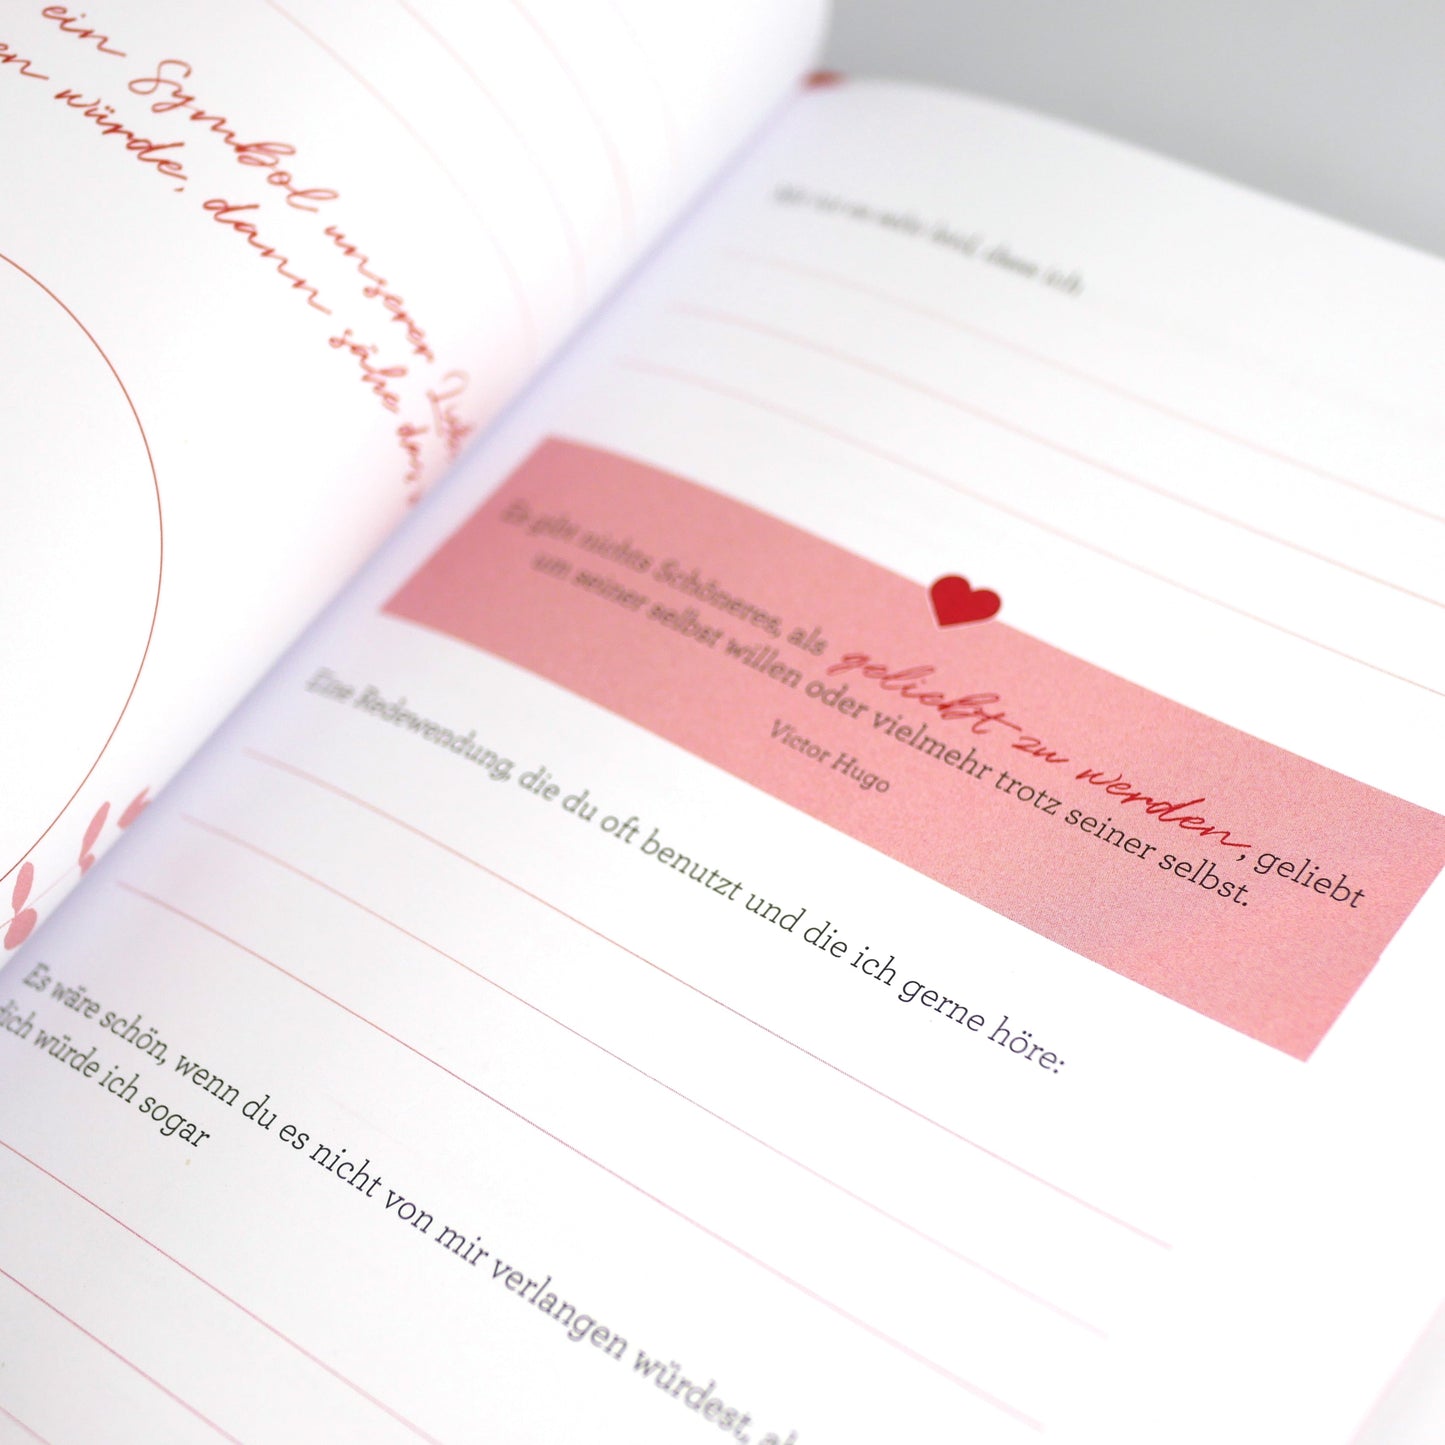 ein Symbol unserer
würde, dann sähe
dann ich
Es gibt nichts Schöneres, als geliebt zu werden, geliebt
um seiner selbst willen oder vielmehr trotz seiner selbst.
Victor Hugo
Eine Redewendung, die du oft benutzt und die ich gerne höre:
Es wäre schön, wenn du es nicht von mir verlangen würdest,
dich würde ich sogar